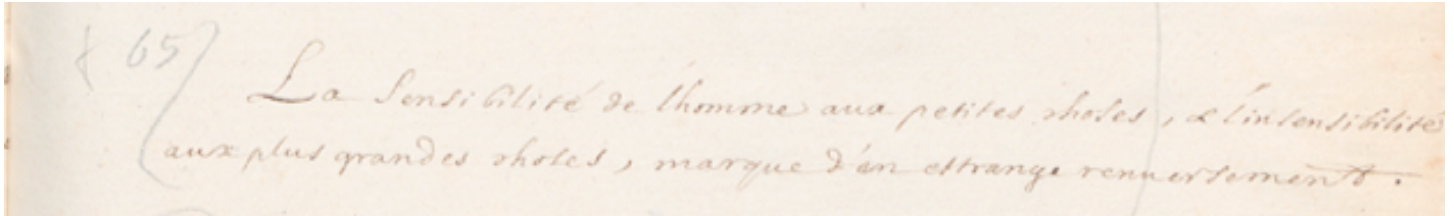 65
La sensibilité de l'homme aux petites choses, & l'insensibilité
aux plus grandes choses, marque d'un estrange renversement.